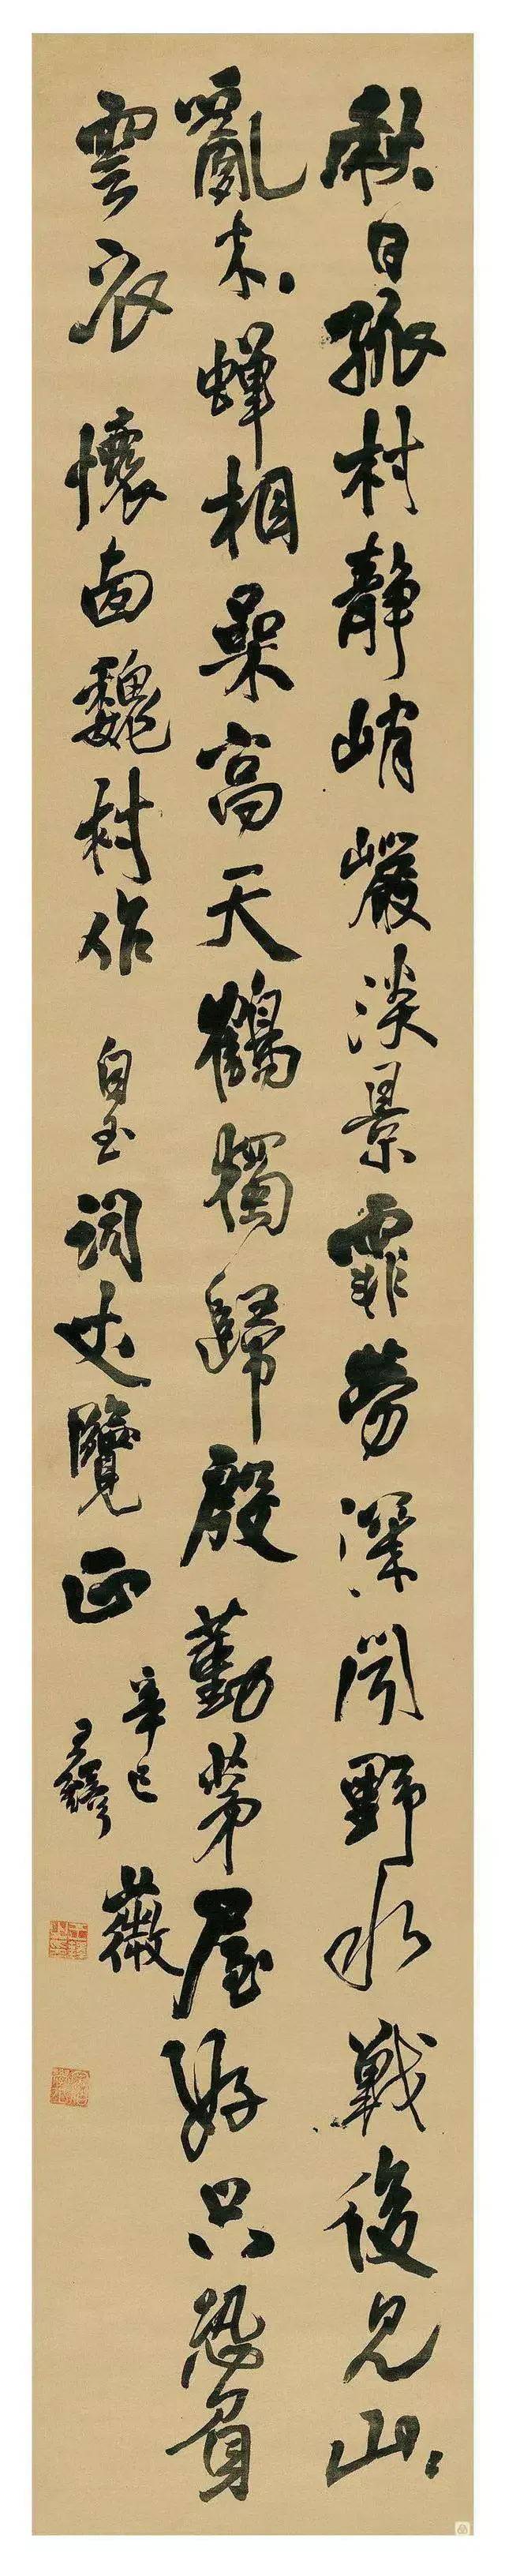 秋日孤村靜峭巖淡景霏勞深聞野水戰後見山
亂木蟬相噪高天鶴獨歸殷勤茅屋好只恐負
雲衣 懷魏村作 自玉詞丈覽正
辛巳
薇
王鐸